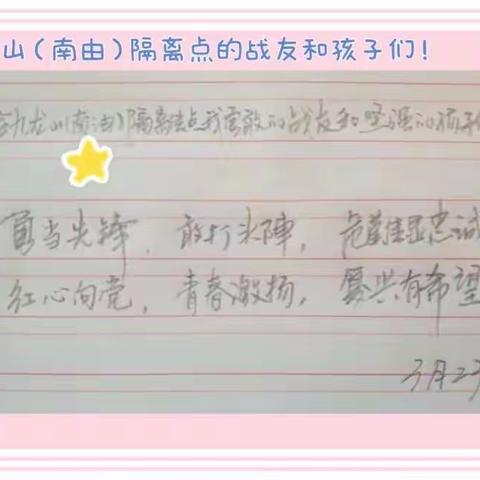 山(南由)隔离点的战友和孩子们!
九龙山(南油)隔离点我勇敢的战友和坚强的孩子
勇当先锋,敢打头陣,危難显忠诚
红心向党,青春激扬,复兴有希望
3月23